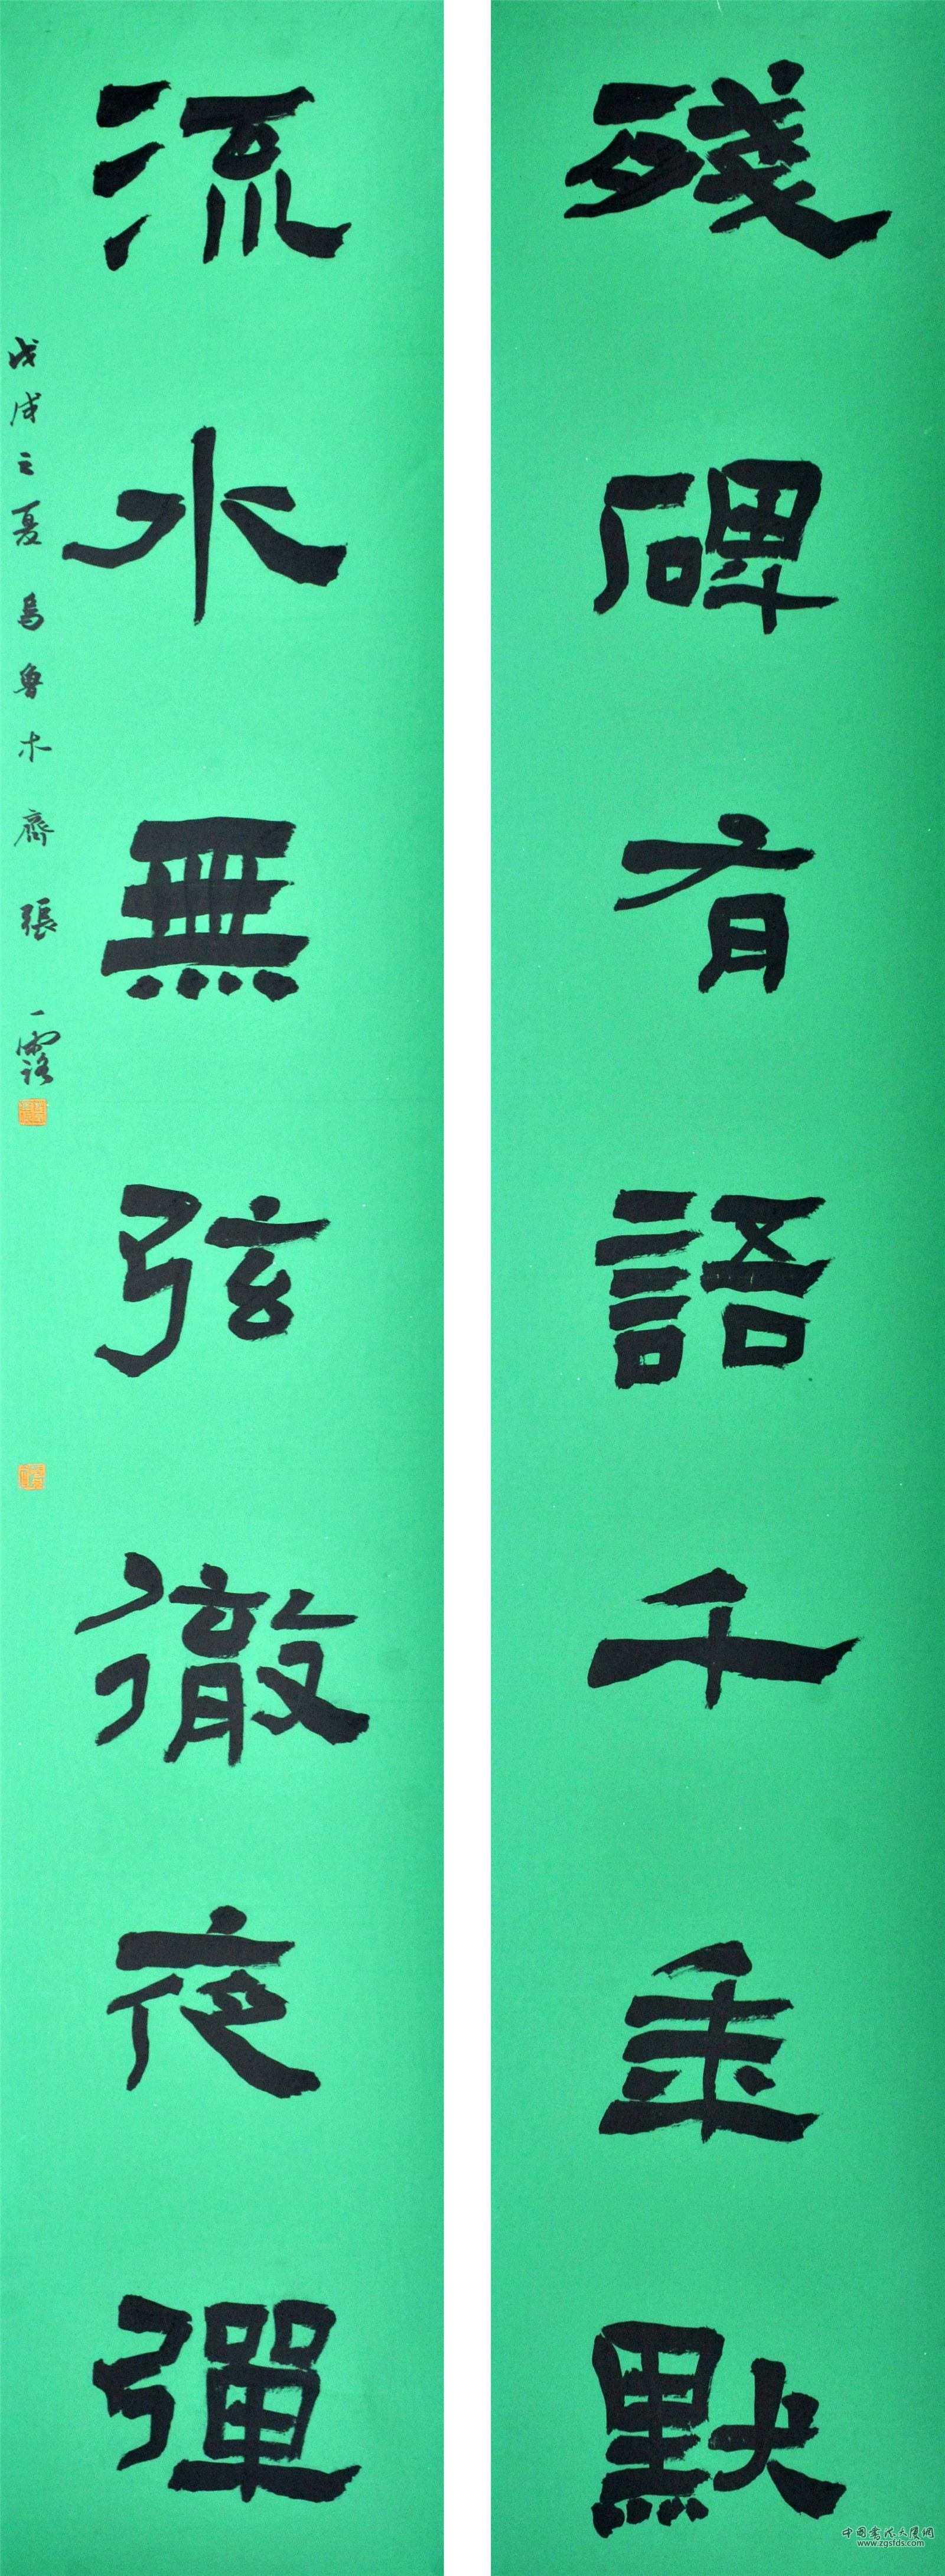 殘碑有語千年默
流水無弦徹夜彈
戊戌之夏烏魯木齊張一露
中国书法大厦网
www.zgsfds.com